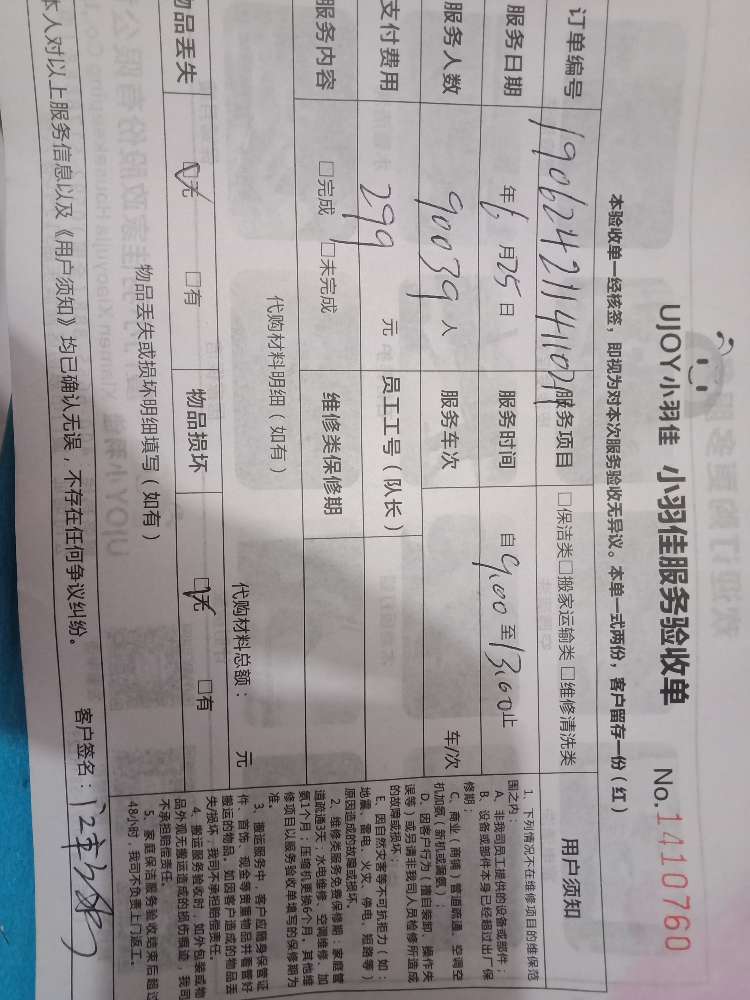 UJOY小羽佳 小羽佳服务验收单 No.1410760
本验收单一经核签，即视为对本次服务验收无异议。本单一式两份，客户留存一份（红）
订单编号 服务项目 □保洁类□搬家运输类 □维修清洗类
服务日期 年6月25日 服务时间 自9:00至13:00止
服务人数 90039人 服务车次 车/次
支付费用 299元 员工工号（队长）
服务内容 □完成 □未完成 维修类保修期
代购材料明细（如有）
代购材料总额： 元
物品丢失 □无 □有 物品损坏 □无 □有
物品丢失或损坏明细填写（如有）
本人对以上服务信息以及《用户须知》均已确认无误，不存在任何争议纠纷。
客户签名：
用户须知
1、下列情况不在维修项目的维保范
围之内：
A、非我司员工提供的设备或部件；
B、设备或部件本身已经超过出厂保
修期；
C、商业（商铺）管道疏通、空调空
机加氨（新机或漏氨）；
D、因客户行为（擅自装卸、操作失
误等）或另请非我司人员检修所造成
的故障或损坏；
E、因自然灾害等不可抗拒力（如：
地震、雷电、火灾、停电、短路等）
原因造成的故障或损坏
2、维修类服务免费保修期：家庭管
道疏通3天；水电维修、空调维修、加
氨1个月；压缩机更换6个月。其他维
修项目以服务验收单填写的保修期为
准。
3、搬运服务中，客户应随身保管证
件、首饰、现金等贵重物品并看管好
搬运的物品。如因客户造成的物品丢
失/损坏，我司不承担赔偿责任。
4、搬运服务验收时，如外包装或物
品外观无搬运造成的损伤痕迹，我司
不承担赔偿责任。
5、家庭保洁服务验收结束后超过
48小时，我司不负责上门返工。